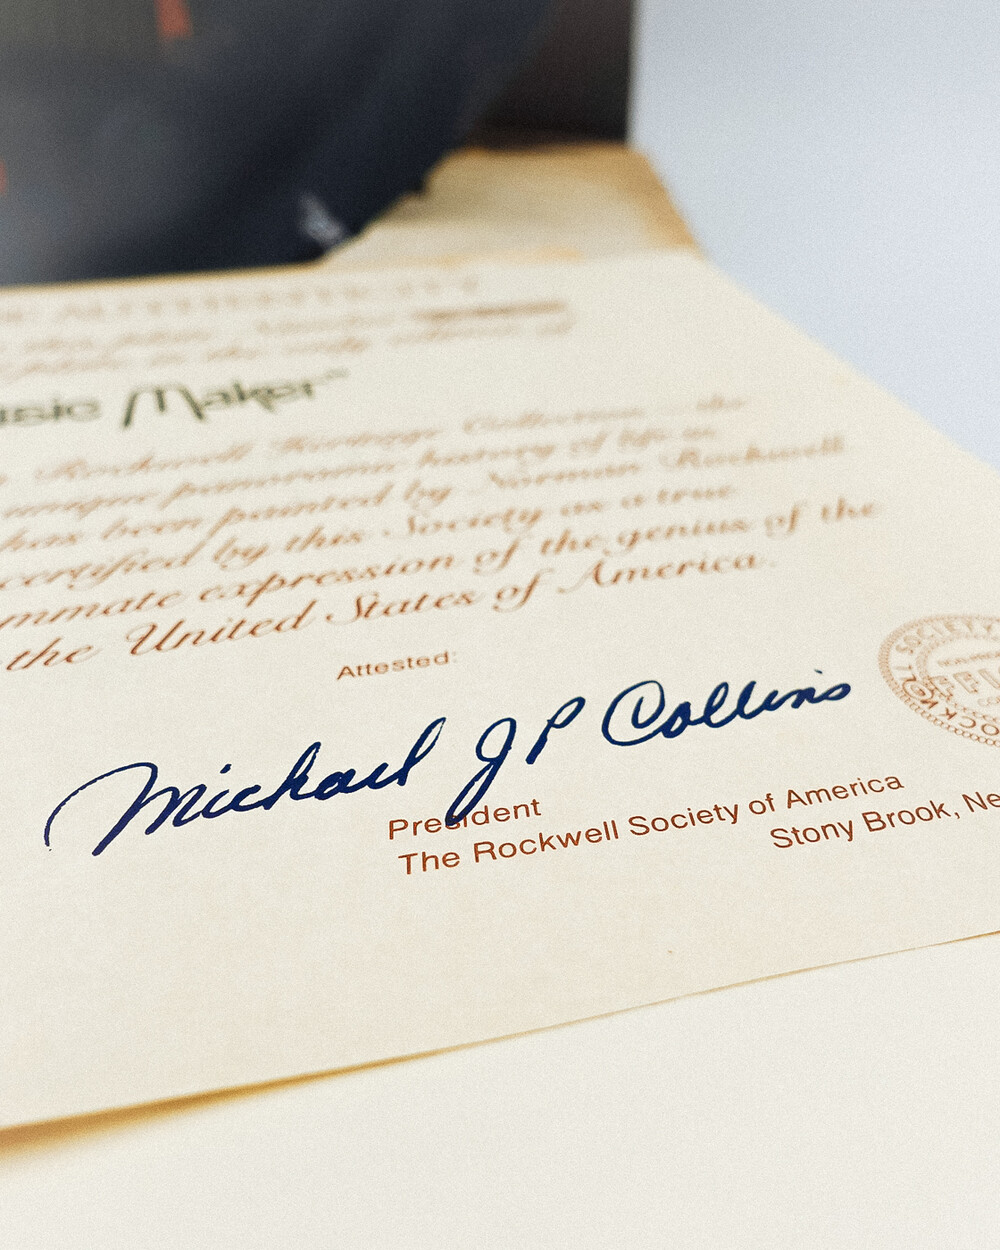 AUTHENTICITY
Music Maker™
Rockwell Heritage Collection... the
unique panoramic history of life in
has been painted by Norman Rockwell
certified by this Society as a true
expression of the genius of the
the United States of America.
Attested:
Michael J P Collins
President
The Rockwell Society of America
Stony Brook, Ne
SOCIETY
ROCKWELL